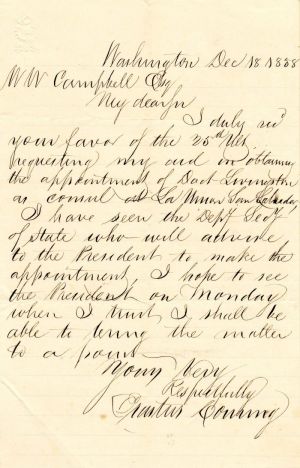 Washington Dec 18 1858
W W Campbell Esq
My dear Sir
I duly rec'd
your favor of the 25th Ult,
requesting my aid in obtaining
the appointment of Doct Livingston
as consul at La Union San Salvador
I have seen the Dept Secy
of State who will advise
to the President to make the
appointment, I hope to see
the President on Monday
when I trust I shall be
able to bring the matter
to a point
Yours Very
Respectfully
Erastus Corning